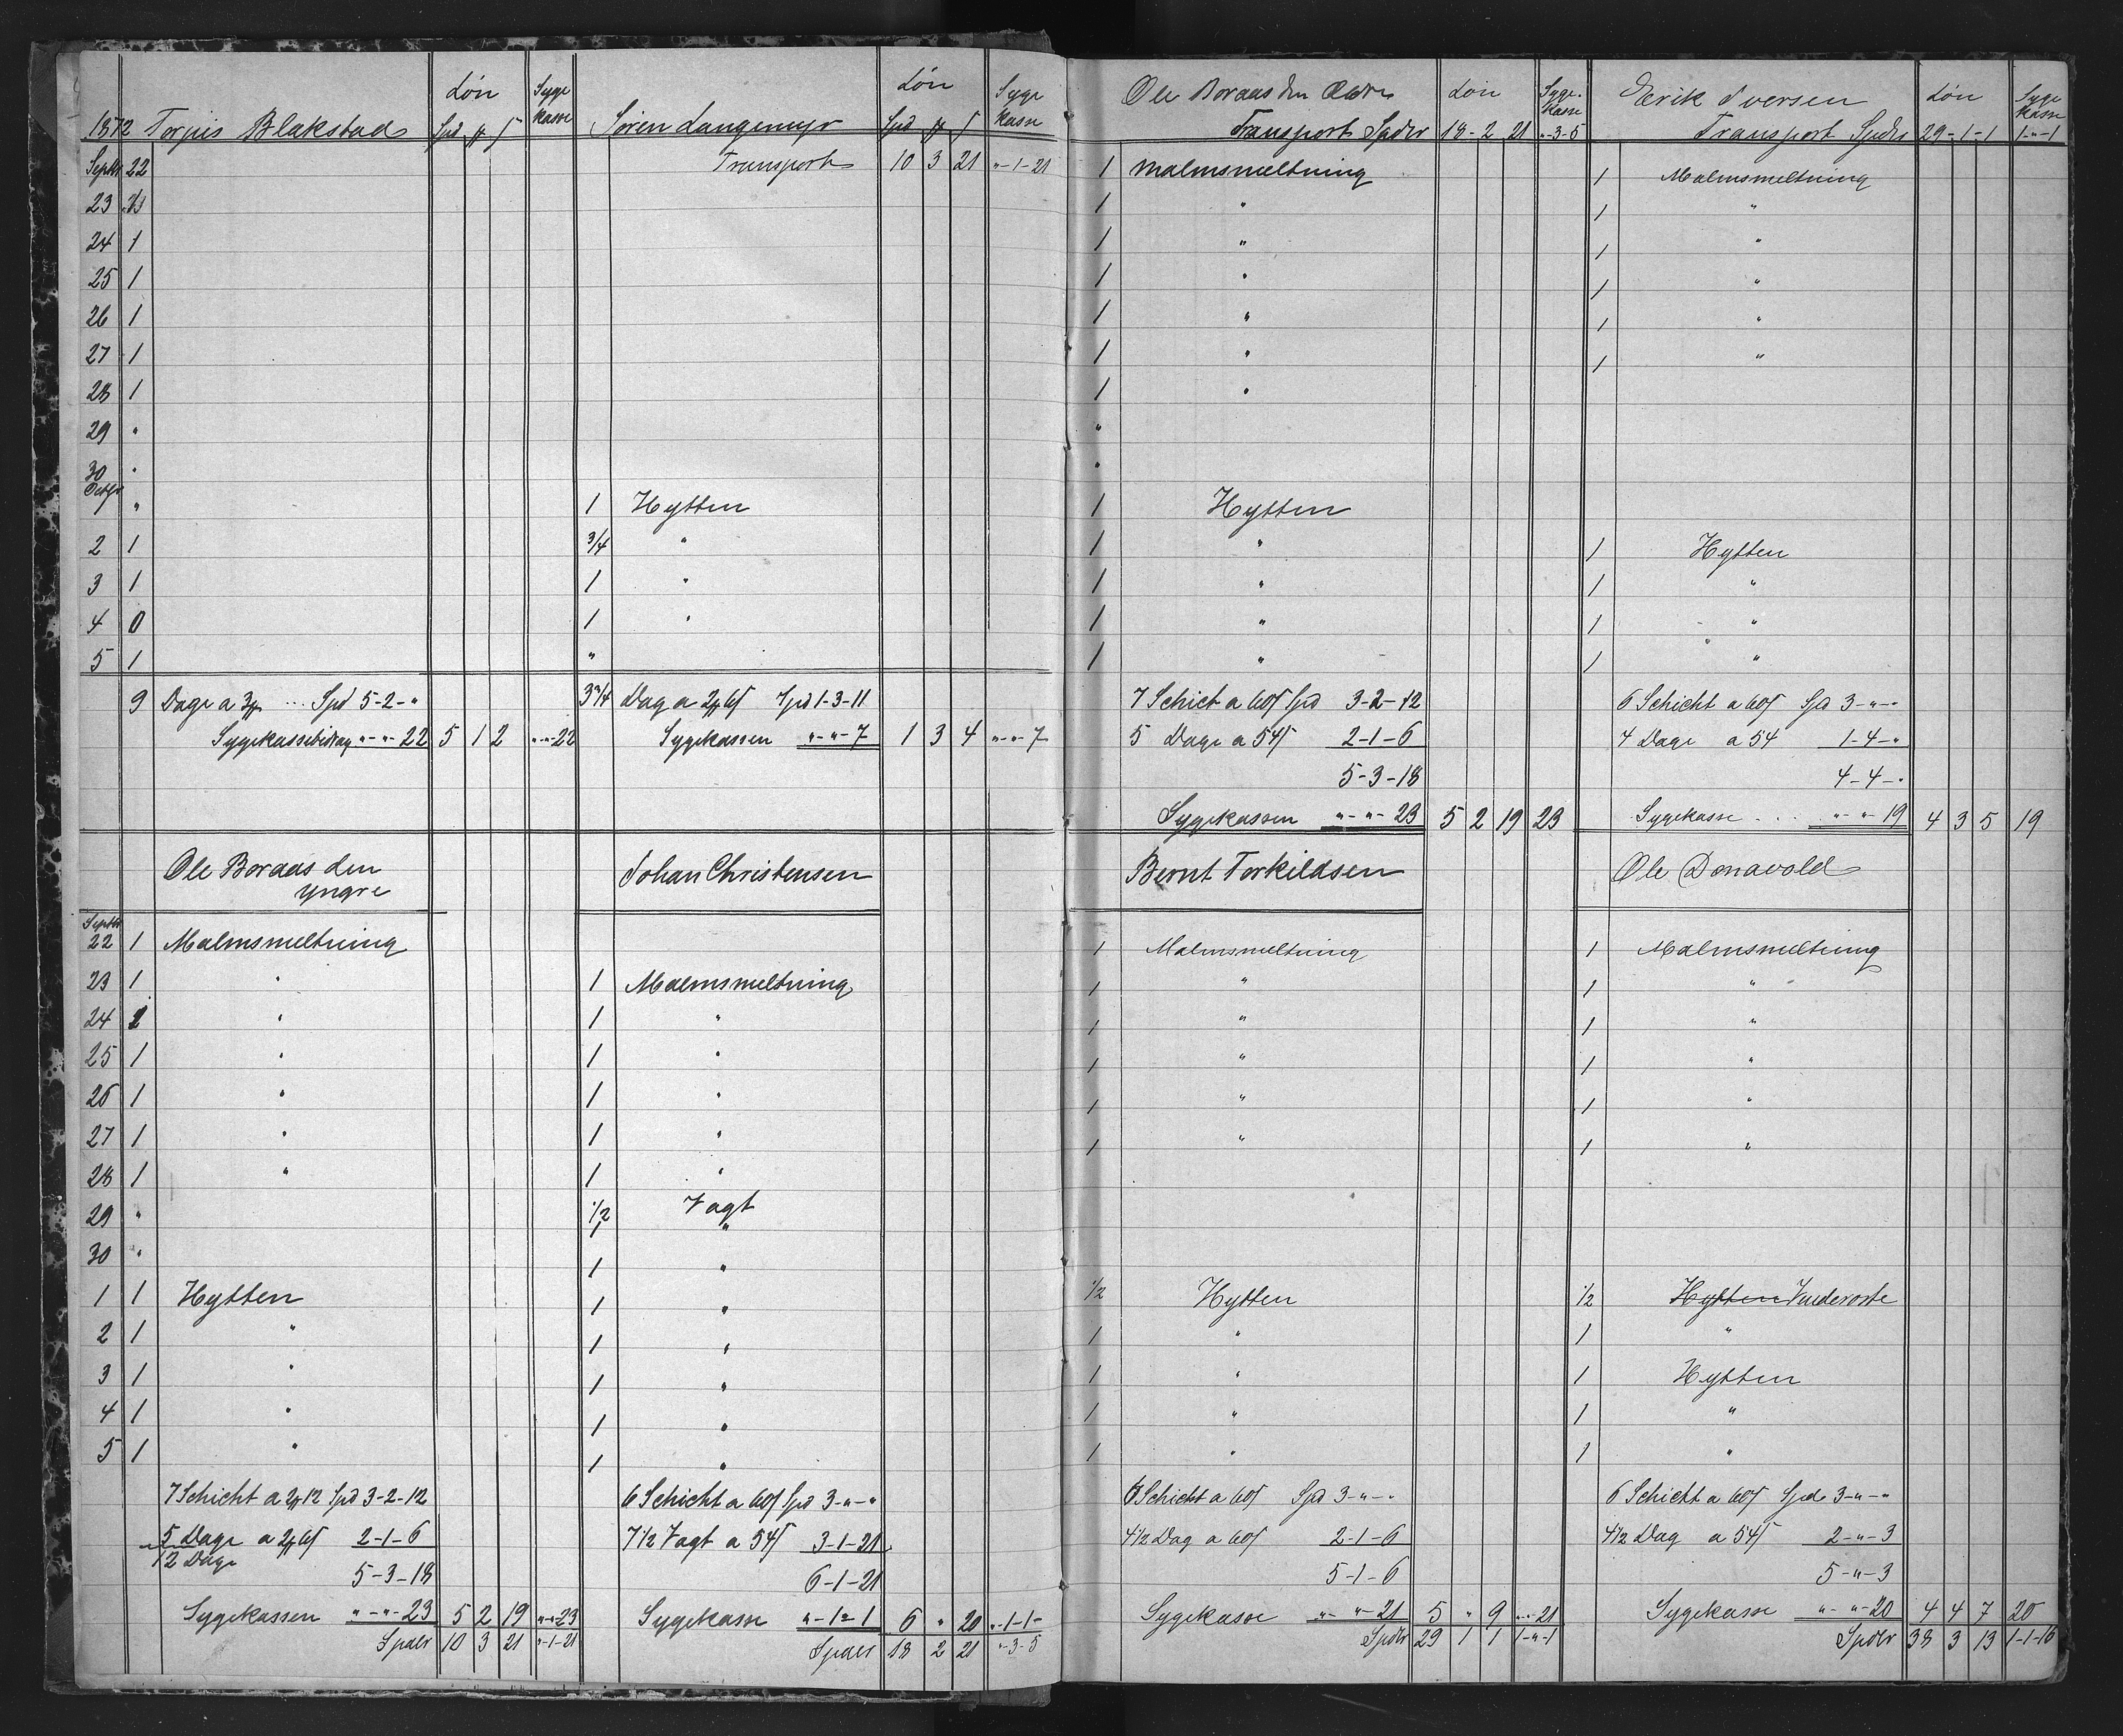 1872 Torjus Blakstad Løn Spd ß Syge kasse
Septbr 22
23 1
24 1
25 1
26 1
27 1
28 1
29 "
30 "
Octbr 1 "
2 1
3 1
4 0
5 1
9 Dage a 3 ... Spd 5-2-"
Sygekassebidrag "-"-22 5 1 2 "-"-22
Ole Boraas den
yngre
Septbr
22 1 Malmsmeltning
23 1 "
24 1 "
25 1 "
26 1 "
27 1 "
28 1 "
29 "
30 "
1 1 Hytten
2 1 "
3 1 "
4 1 "
5 1 "
7 Schicht a 2 12 Spd 3-2-12
5 Dage a 2 6 2-1-6
12 Dage
5-3-18
Sygekassen "-"-23 5 2 19 "-"-23
Spdlr 10 3 21 "-1-21
Søren Langemyr Løn Spd Syge kasse
Transport 10 3 21 "-1-21
1 Hytten
3/4 "
1 "
1 "
"
3 3/4 Dag a 2 6 Spd 1-3-11
Sygekassen "-"-7 1 3 4 "-"-7
Johan Christensen
1 Malmsmeltning
1 "
1 "
1 "
1 "
1 "
1/2 Vagt
1 "
1 "
1 "
1 "
1 "
1 "
6 Schicht a 60 Spd 3-"-"
7 1/2 Vagt a 54 3-1-21
6-1-21
Sygekasse "-1-1 6 " 20 "-1-1
Spdlr 18 2 21 "-3-5
Ole Boraas den Ældre Løn Syge- kasse
Transport Spdlr 18-2 21 "-3-5
1 Malmsmeltning
1 "
1 "
1 "
1 "
1 "
1 "
"
"
1 Hytten
1 "
1 "
1 "
1 "
7 Schict a 60 Spd 3-2-12
5 Dage a 54 2-1-6
5-3-18
Sygekassen "-"-23 5 2 19 23
Bernt Torkildsen
1 Malmsmeltning
1 "
1 "
1 "
1 "
1 "
1/2 Hytten
1 "
1 "
1 "
1 "
6 Schicht a 60 Spd 3-"-"
4 1/2 Dag a 60 2-1-6
5-1-6
Sygekasse "-"-21 5 " 9 "-"-21
Spdlr 29 1 1 1-"-1
Erik Iversen Løn Syge kasse
Transport Spdlr 29-1-1 1-"-1
1 Malmsmeltning
1 "
1 "
1 "
1 "
1 "
1 Hytten
1 "
1 "
1 "
6 Schicht a 60 Spd 3-"-"
4 Dage a 54 1-4-"
4-4-"
Sygekasse ... "-"-19 4 3 5 19
Ole Donavold
1 Malmsmeltning
1 "
1 "
1 "
1 "
1 "
1/2 Hytten
1 "
1 Hytten
1 "
1 "
6 Schicht a 60 Spd 3-"-"
4 1/2 Dag a 54 2-"-3
5-"-3
Sygekasse "-"-20 4 4 7 20
Spdlr 38 3 13 1-1-16